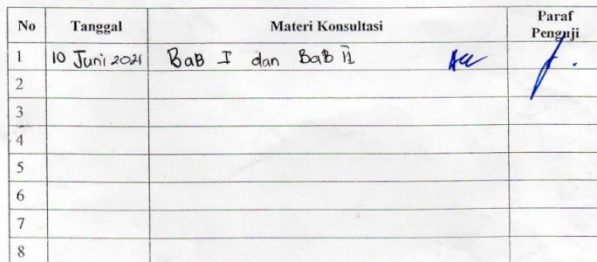 No Tanggal Materi Konsultasi Paraf Penguji
1 10 Juni 2021 BaB I dan BaB II Acc
2
3
4
5
6
7
8